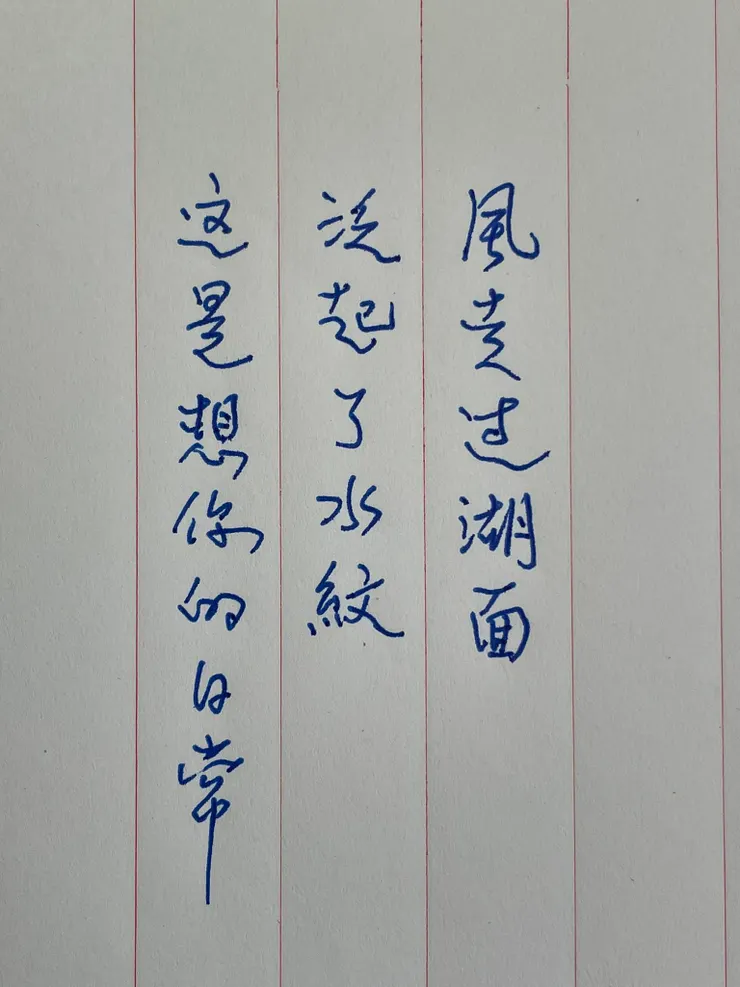 風走过湖面
泛起了水紋
这是想你的日常